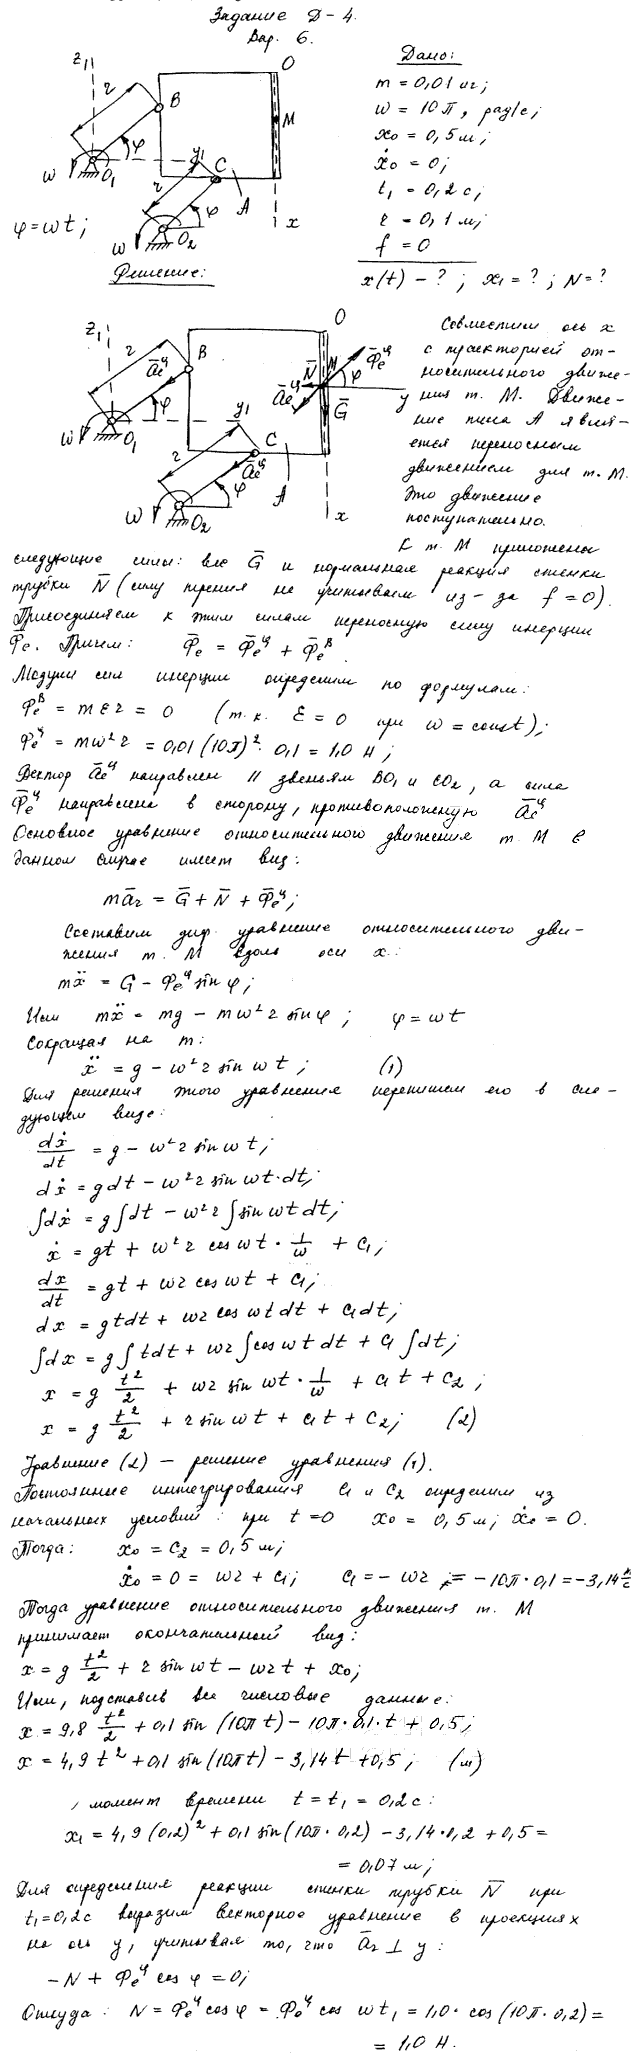 Задание Д-4.
Вар. 6.
Дано:
m = 0,01 кг;
ω = 10π, рад/с;
x₀ = 0,5 м;
ẋ₀ = 0;
t₁ = 0,2 с;
r = 0,1 м;
f = 0
x(t) - ? ; x₁ = ? ; N = ?
z₁ O
r B M
φ y₁ C
ω O₁ r A
φ x
ω O₂
φ = ωt;
Решение:
z₁ O
r B N̄ M Φ̄eᶸ
āeᶸ āeᶸ φ
φ y₁ Ḡ y
ω O₁ C
r āeᶸ A
φ
ω O₂ x
Совместим ось x
с траекторией от-
носительного движе-
ния т. М. Движе-
ние тела А явля-
ется переносным
движением для т. М.
Это движение
поступательно.
К т. М приложены
следующие силы: вес Ḡ и нормальная реакция стенки
трубки N̄ (силу трения не учитываем из-за f = 0).
Присоединяем к этим силам переносную силу инерции
Φ̄e. Причем: Φ̄e = Φ̄eᶸ + Φ̄eᴮ
Модули сил инерции определим по формулам:
Φeᴮ = mεr = 0 (т.к. ε = 0 при ω = const);
Φeᶸ = mω²r = 0,01 (10π)² · 0,1 = 1,0 Н;
Вектор āeᶸ направлен // звеньям BO₁ и CO₂, а сила
Φ̄eᶸ направлена в сторону, противоположную āeᶸ
Основное уравнение относительного движения т. М в
данном случае имеет вид:
mār = Ḡ + N̄ + Φ̄eᶸ;
Составим диф. уравнение относительного дви-
жения т. М вдоль оси x:
mẍ = G - Φeᶸ sin φ;
Или mẍ = mg - mω²r sin φ ; φ = ωt
Сокращая на m:
ẍ = g - ω²r sin ωt ; (1)
Для решения этого уравнения перепишем его в сле-
дующем виде:
dẋ/dt = g - ω²r sin ωt;
dẋ = gdt - ω²r sin ωt·dt;
∫dẋ = g∫dt - ω²r ∫sin ωt dt;
ẋ = gt + ω²r cos ωt · 1/ω + C₁;
dx/dt = gt + ωr cos ωt + C₁;
dx = gtdt + ωr cos ωt dt + C₁dt;
∫dx = g∫tdt + ωr∫cos ωt dt + C₁∫dt;
x = g t²/2 + ωr sin ωt · 1/ω + C₁t + C₂ ;
x = g t²/2 + r sin ωt + C₁t + C₂; (2)
Уравнение (2) - решение уравнения (1).
Постоянные интегрирования C₁ и C₂ определим из
начальных условий : при t = 0 x₀ = 0,5 м; ẋ₀ = 0.
Тогда: x₀ = C₂ = 0,5 м;
ẋ₀ = 0 = ωr + C₁; C₁ = - ωr = -10π·0,1 = -3,14 м/с
Тогда уравнение относительного движения т. М
принимает окончательный вид:
x = g t²/2 + r sin ωt - ωrt + x₀;
Или, подставив все числовые данные:
x = 9,8 t²/2 + 0,1 sin (10πt) - 10π·0,1·t + 0,5;
x = 4,9 t² + 0,1 sin (10πt) - 3,14t + 0,5 ; (м)
, момент времени t = t₁ = 0,2 с:
x₁ = 4,9 (0,2)² + 0,1 sin (10π·0,2) - 3,14·0,2 + 0,5 =
= 0,07 м;
Для определения реакции стенки трубки N̄ при
t₁=0,2с выразим векторное уравнение в проекциях
на ось y, учитывая то, что ār ⊥ y:
-N + Φeᶸ cos φ = 0;
Откуда: N = Φeᶸ cos φ = Φeᶸ cos ωt₁ = 1,0 · cos (10π·0,2) =
= 1,0 Н.